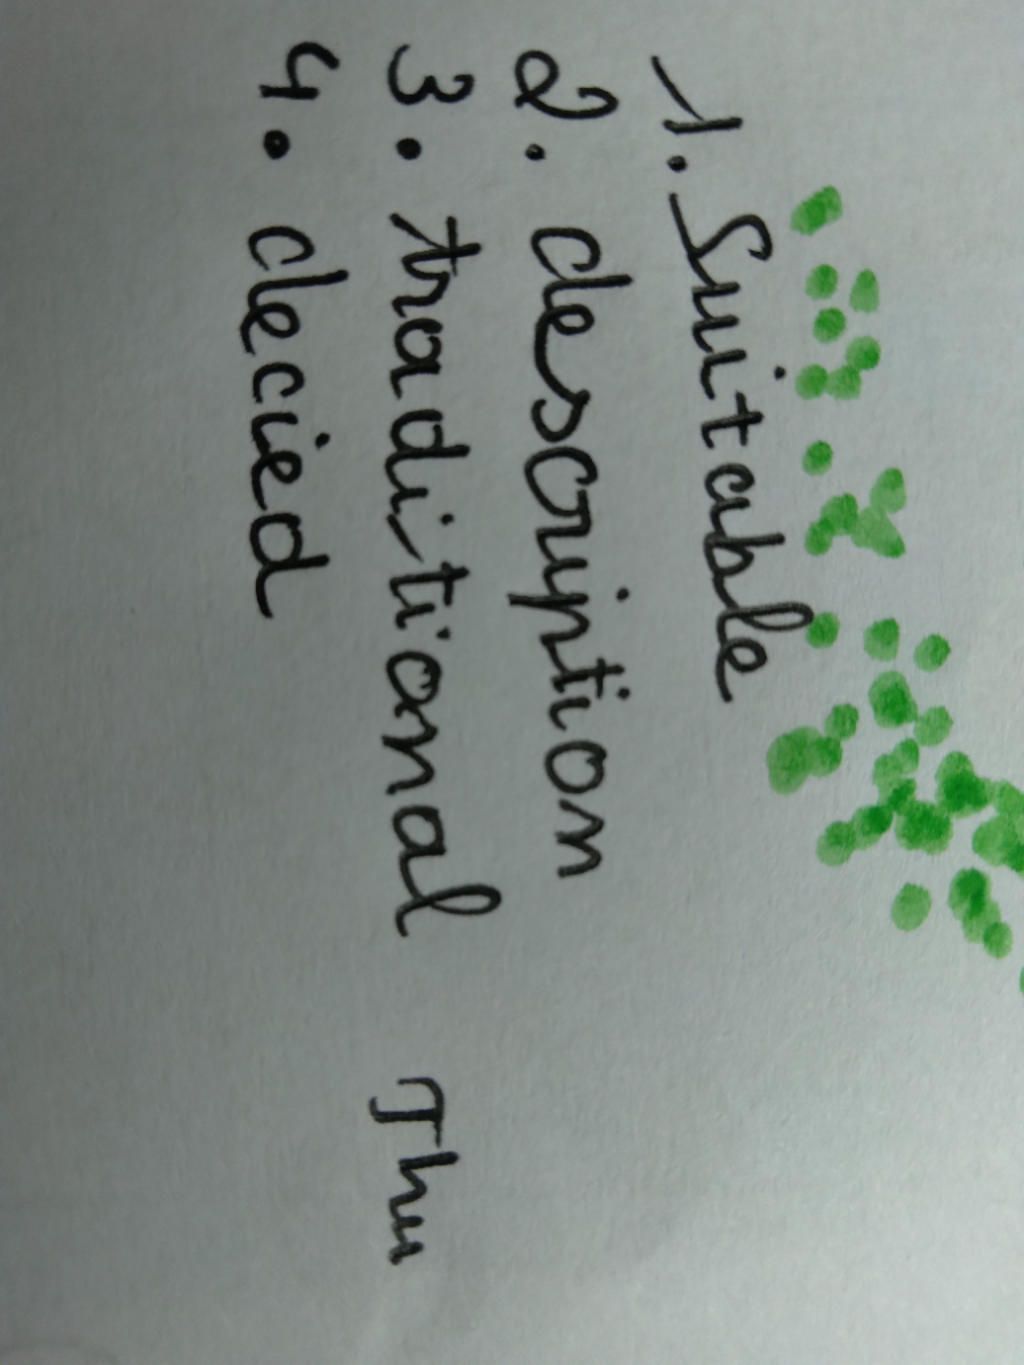 1. Suitable
2. description
3. traditional Thu
4. decied